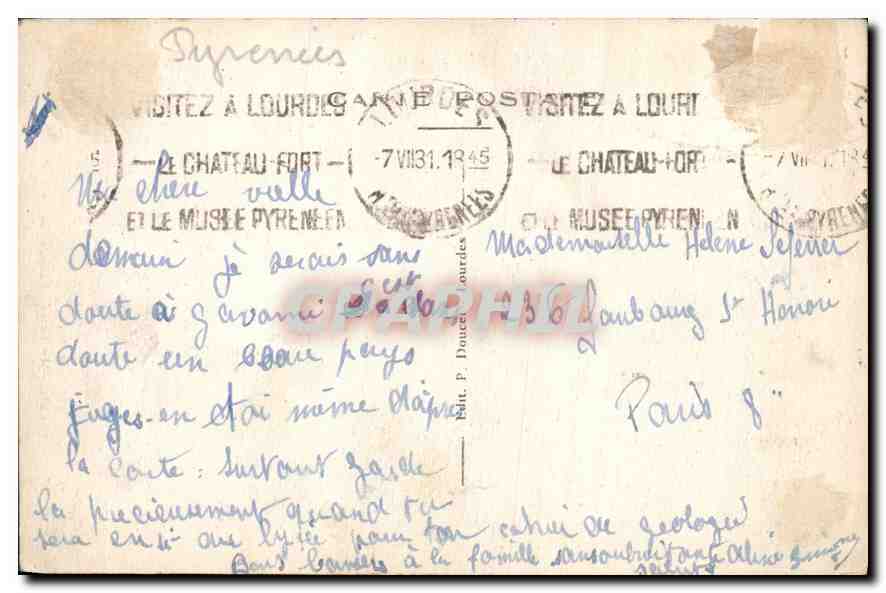 Pyrenées
VISITEZ A LOURDES
LE CHATEAU-FORT
ET LE MUSEE PYRENEEN
CARTE POSTALE
LOURDES
-7 VII 31. 18 45
PYRENEES
VISITEZ A LOURD
LE CHATEAU-FORT
ET LE MUSEE PYRENEEN
-7 VII
PYRENEES
Ma chère vielle
demain je serais sans
doute à gavarni c'est
doute un beau pays
juges-en etoi même d'apre
la carte : surtout garde
la precieusement quand tu
sera en au lycée pour ton cahier de geologie
Bons baisers à la famille sans oublier
Mademoiselle Helene
236 Faubourg St Honoré
Paris 8
Edit. P. Doucet, Lourdes
CPAPHIL